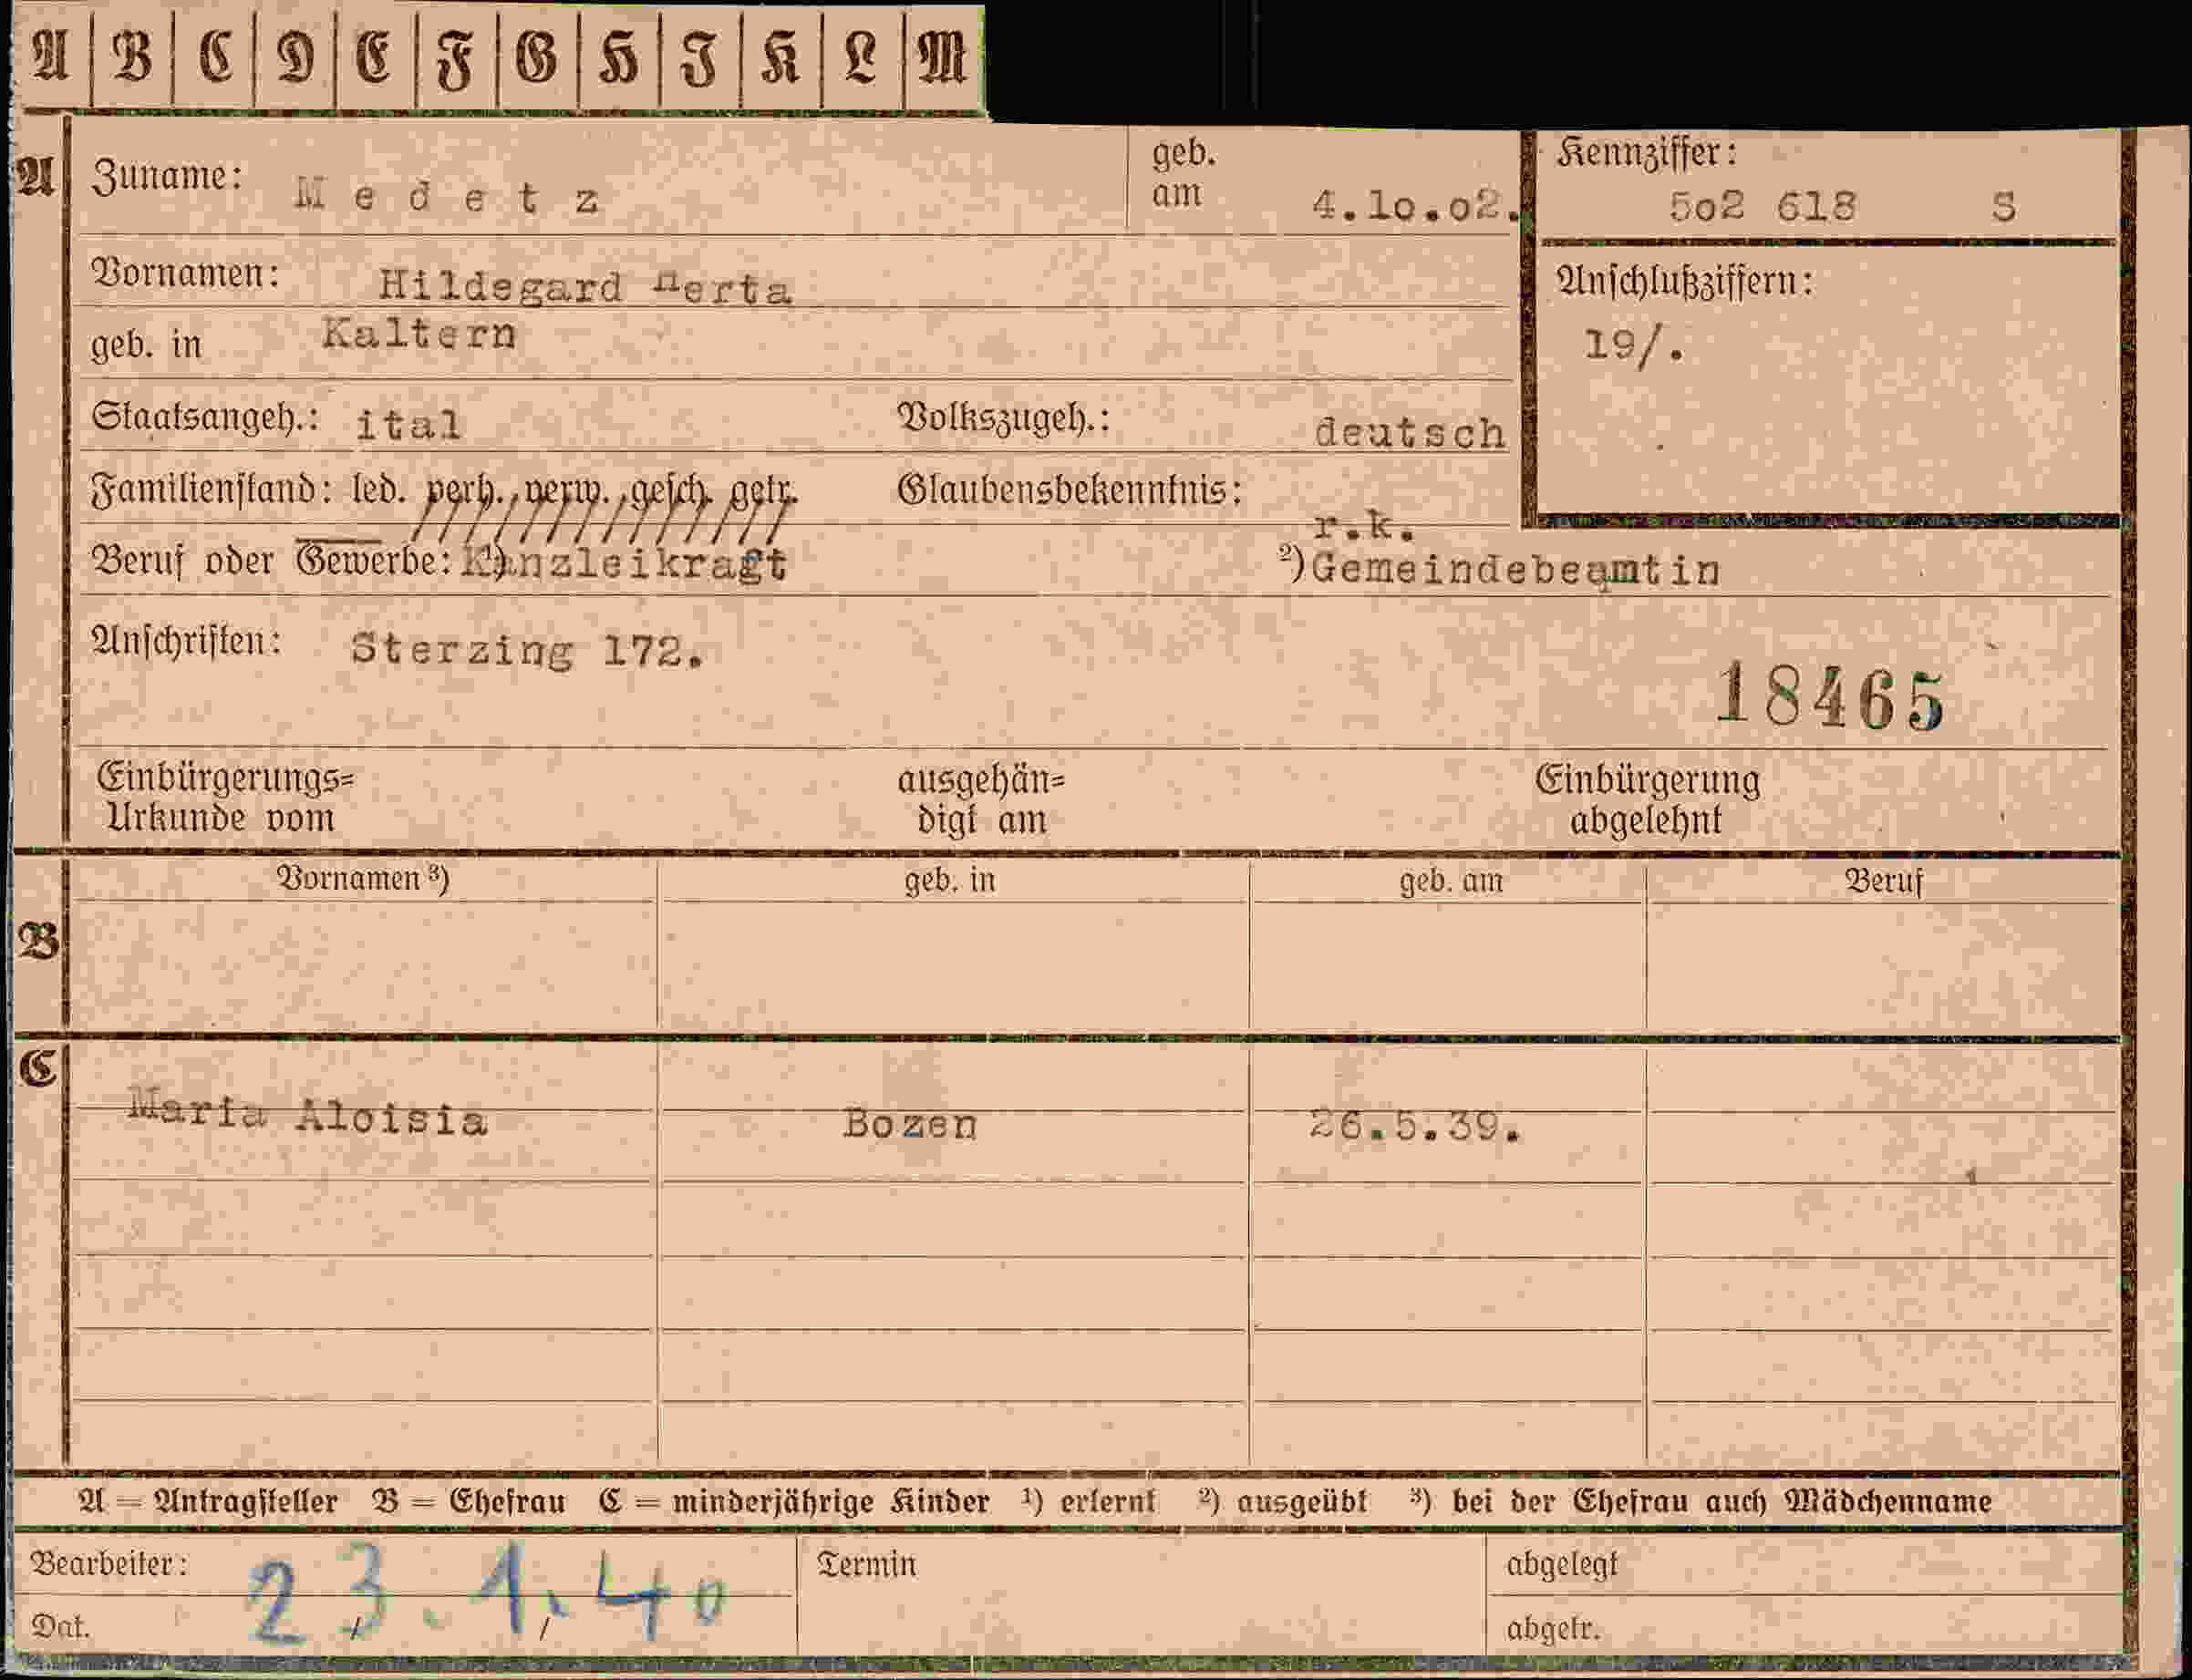 A B C D E F G H I K L M
A Zuname: Medetz geb. am 4.10.02. Kennziffer: 502 618 S
Vornamen: Hildegard Herta Anschlußziffern:
geb. in Kaltern 19/.
Staatsangeh.: ital Volkszugeh.: deutsch
Familienstand: led. verh., verw., gesch. getr. Glaubensbekenntnis: r.k.
Beruf oder Gewerbe: Kanzleikragt ²)Gemeindebeamtin
Anschriften: Sterzing 172.
18465
Einbürgerungs= ausgehän= Einbürgerung
Urkunde vom digt am abgelehnt
Vornamen ³) geb. in geb. am Beruf
B
C
Maria Aloisia Bozen 26.5.39.
A = Antragsteller B = Ehefrau C = minderjährige Kinder ¹) erlernt ²) ausgeübt ³) bei der Ehefrau auch Mädchenname
Bearbeiter: Termin abgelegt
23.1.40
Dat. abgetr.